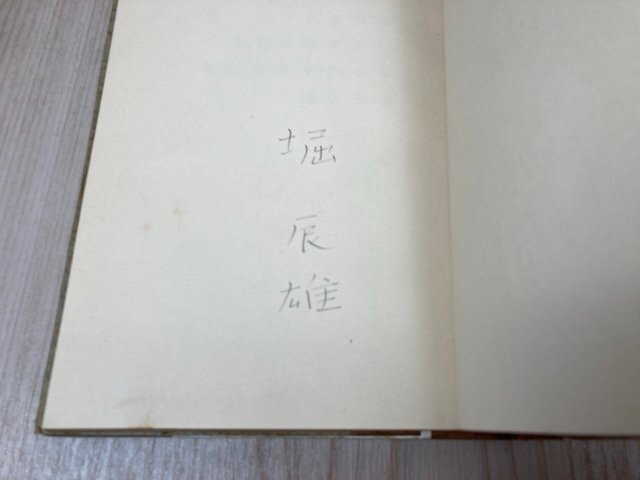 堀
辰
雄